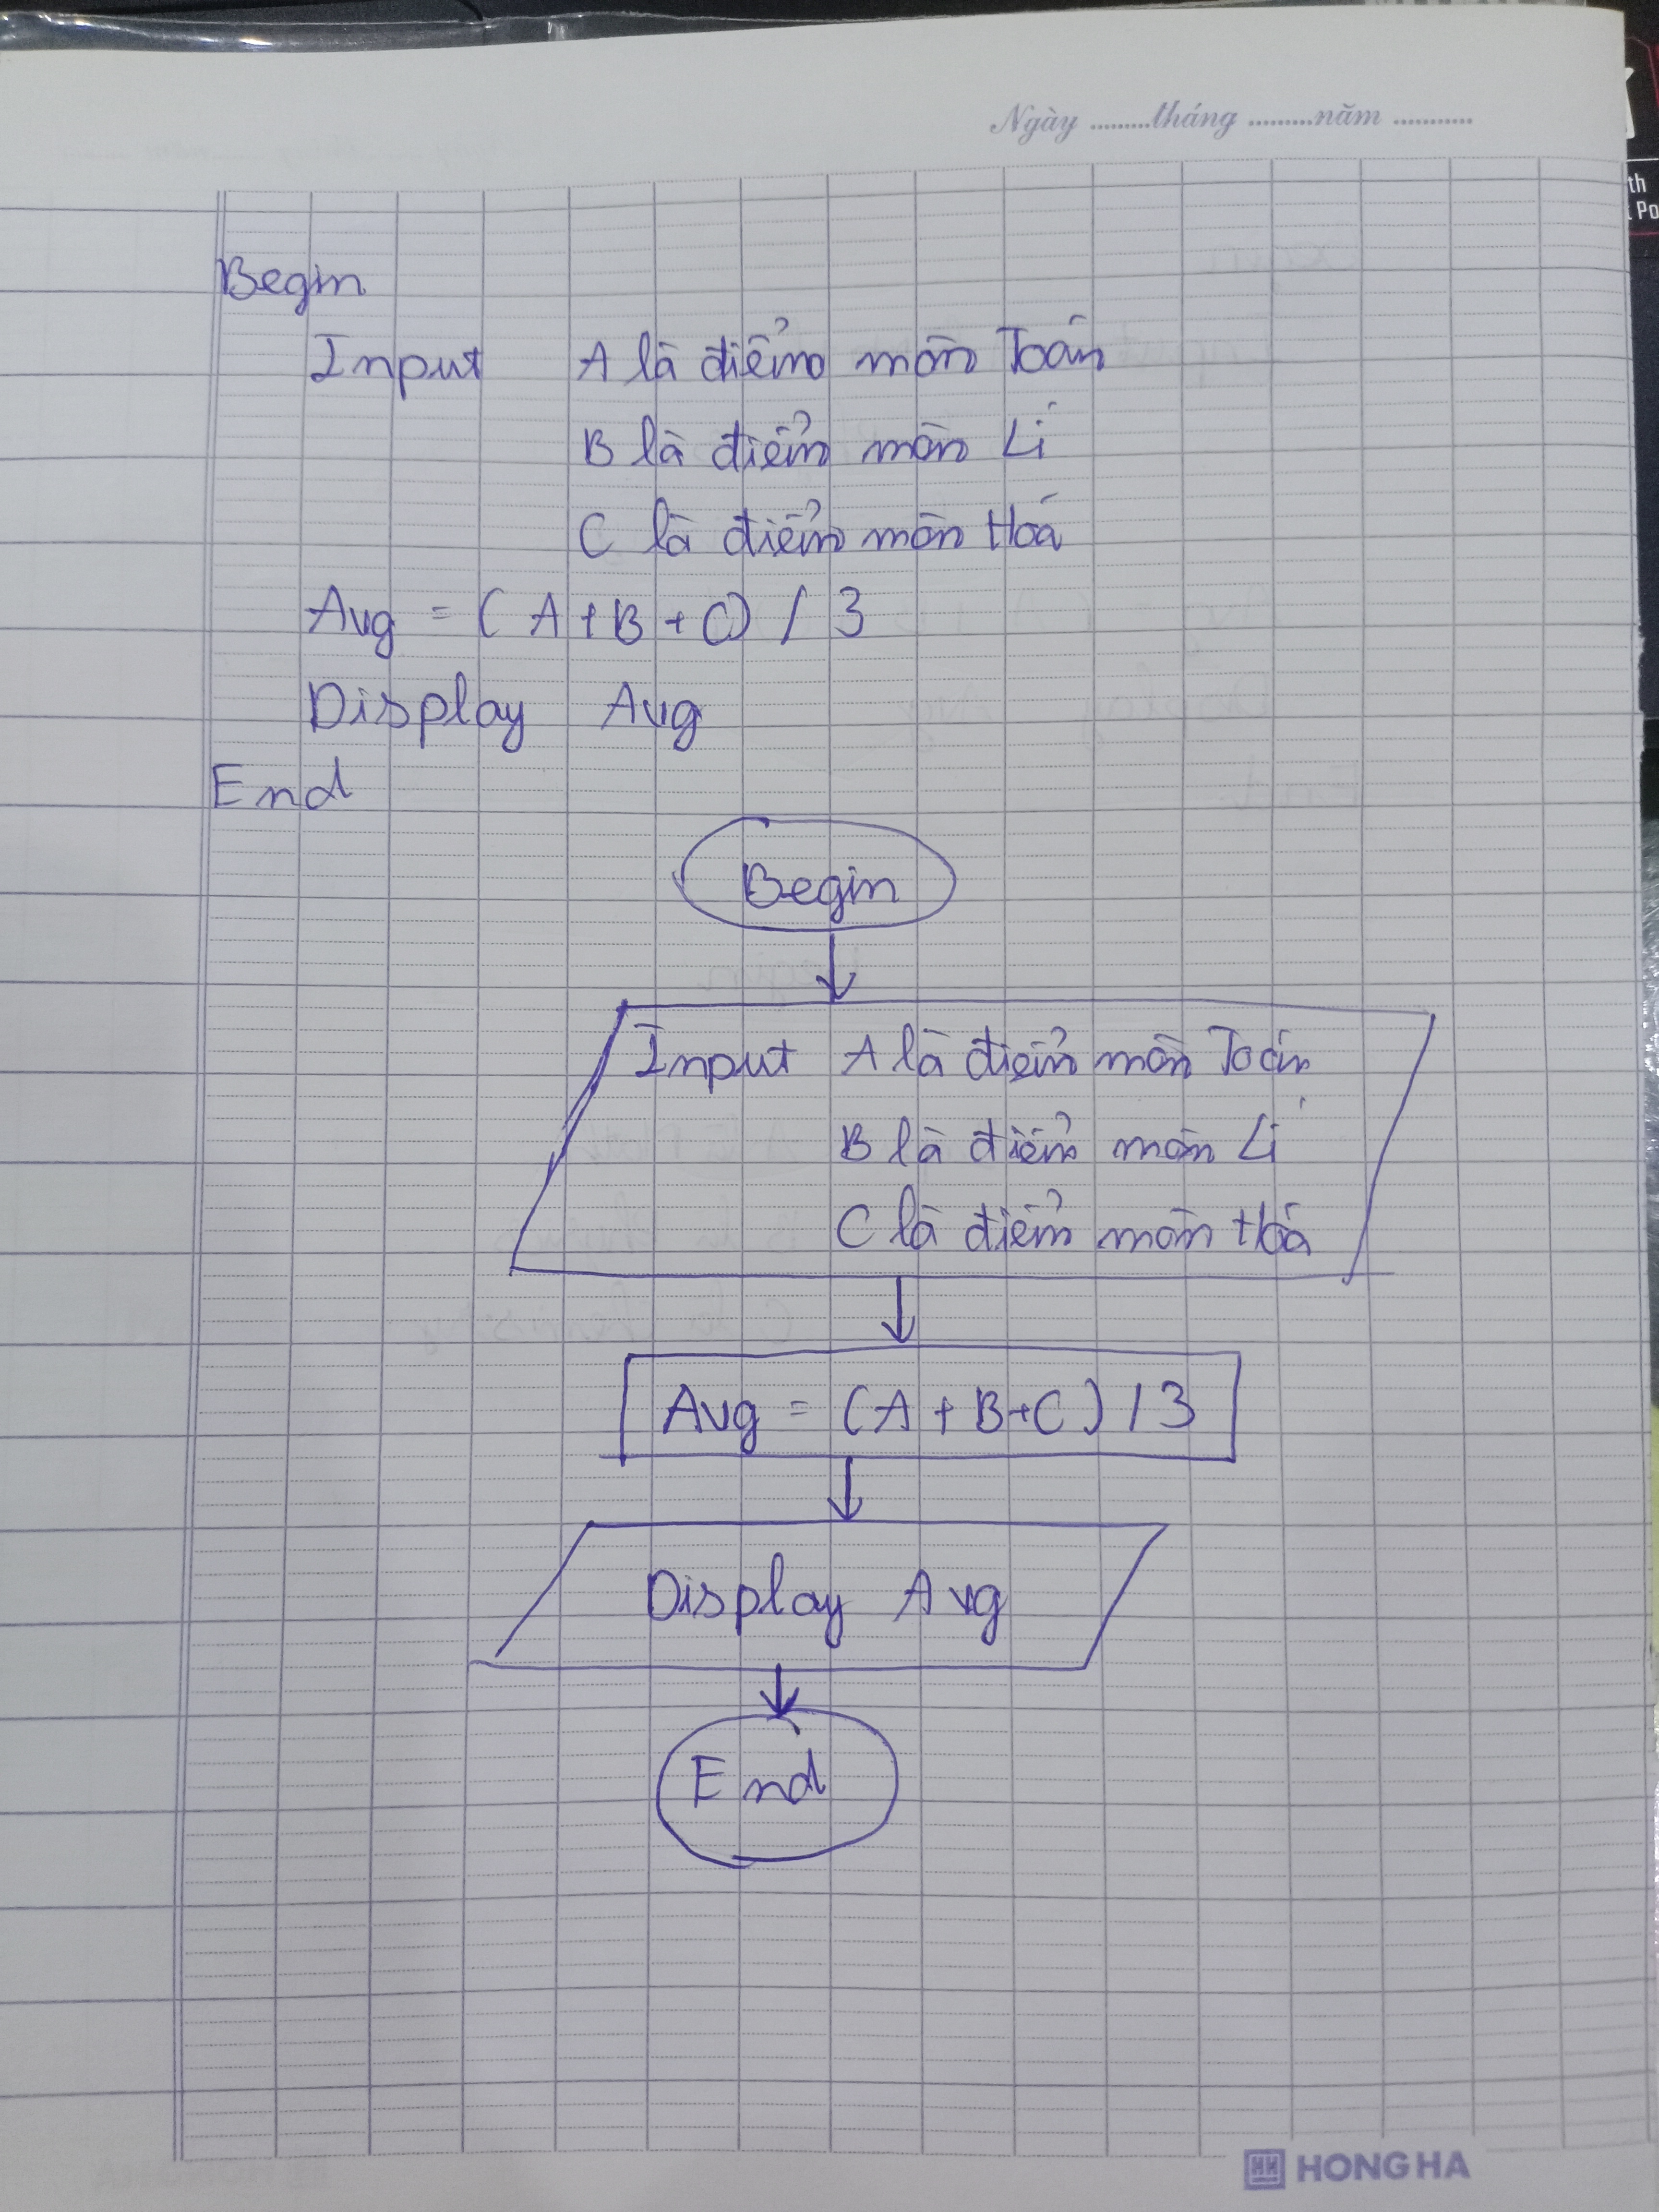 Ngày ......... tháng ......... năm ...........
th
Po
Begin
Input A là điểm môn Toán
B là điểm môn Lí
C là điểm môn Hoá
Avg = (A+B+C) / 3
Display Avg
End
Begin
Input A là điểm môn Toán
B là điểm môn Lí
C là điểm môn Hoá
Avg = (A+B+C) / 3
Display Avg
End
HONG HA